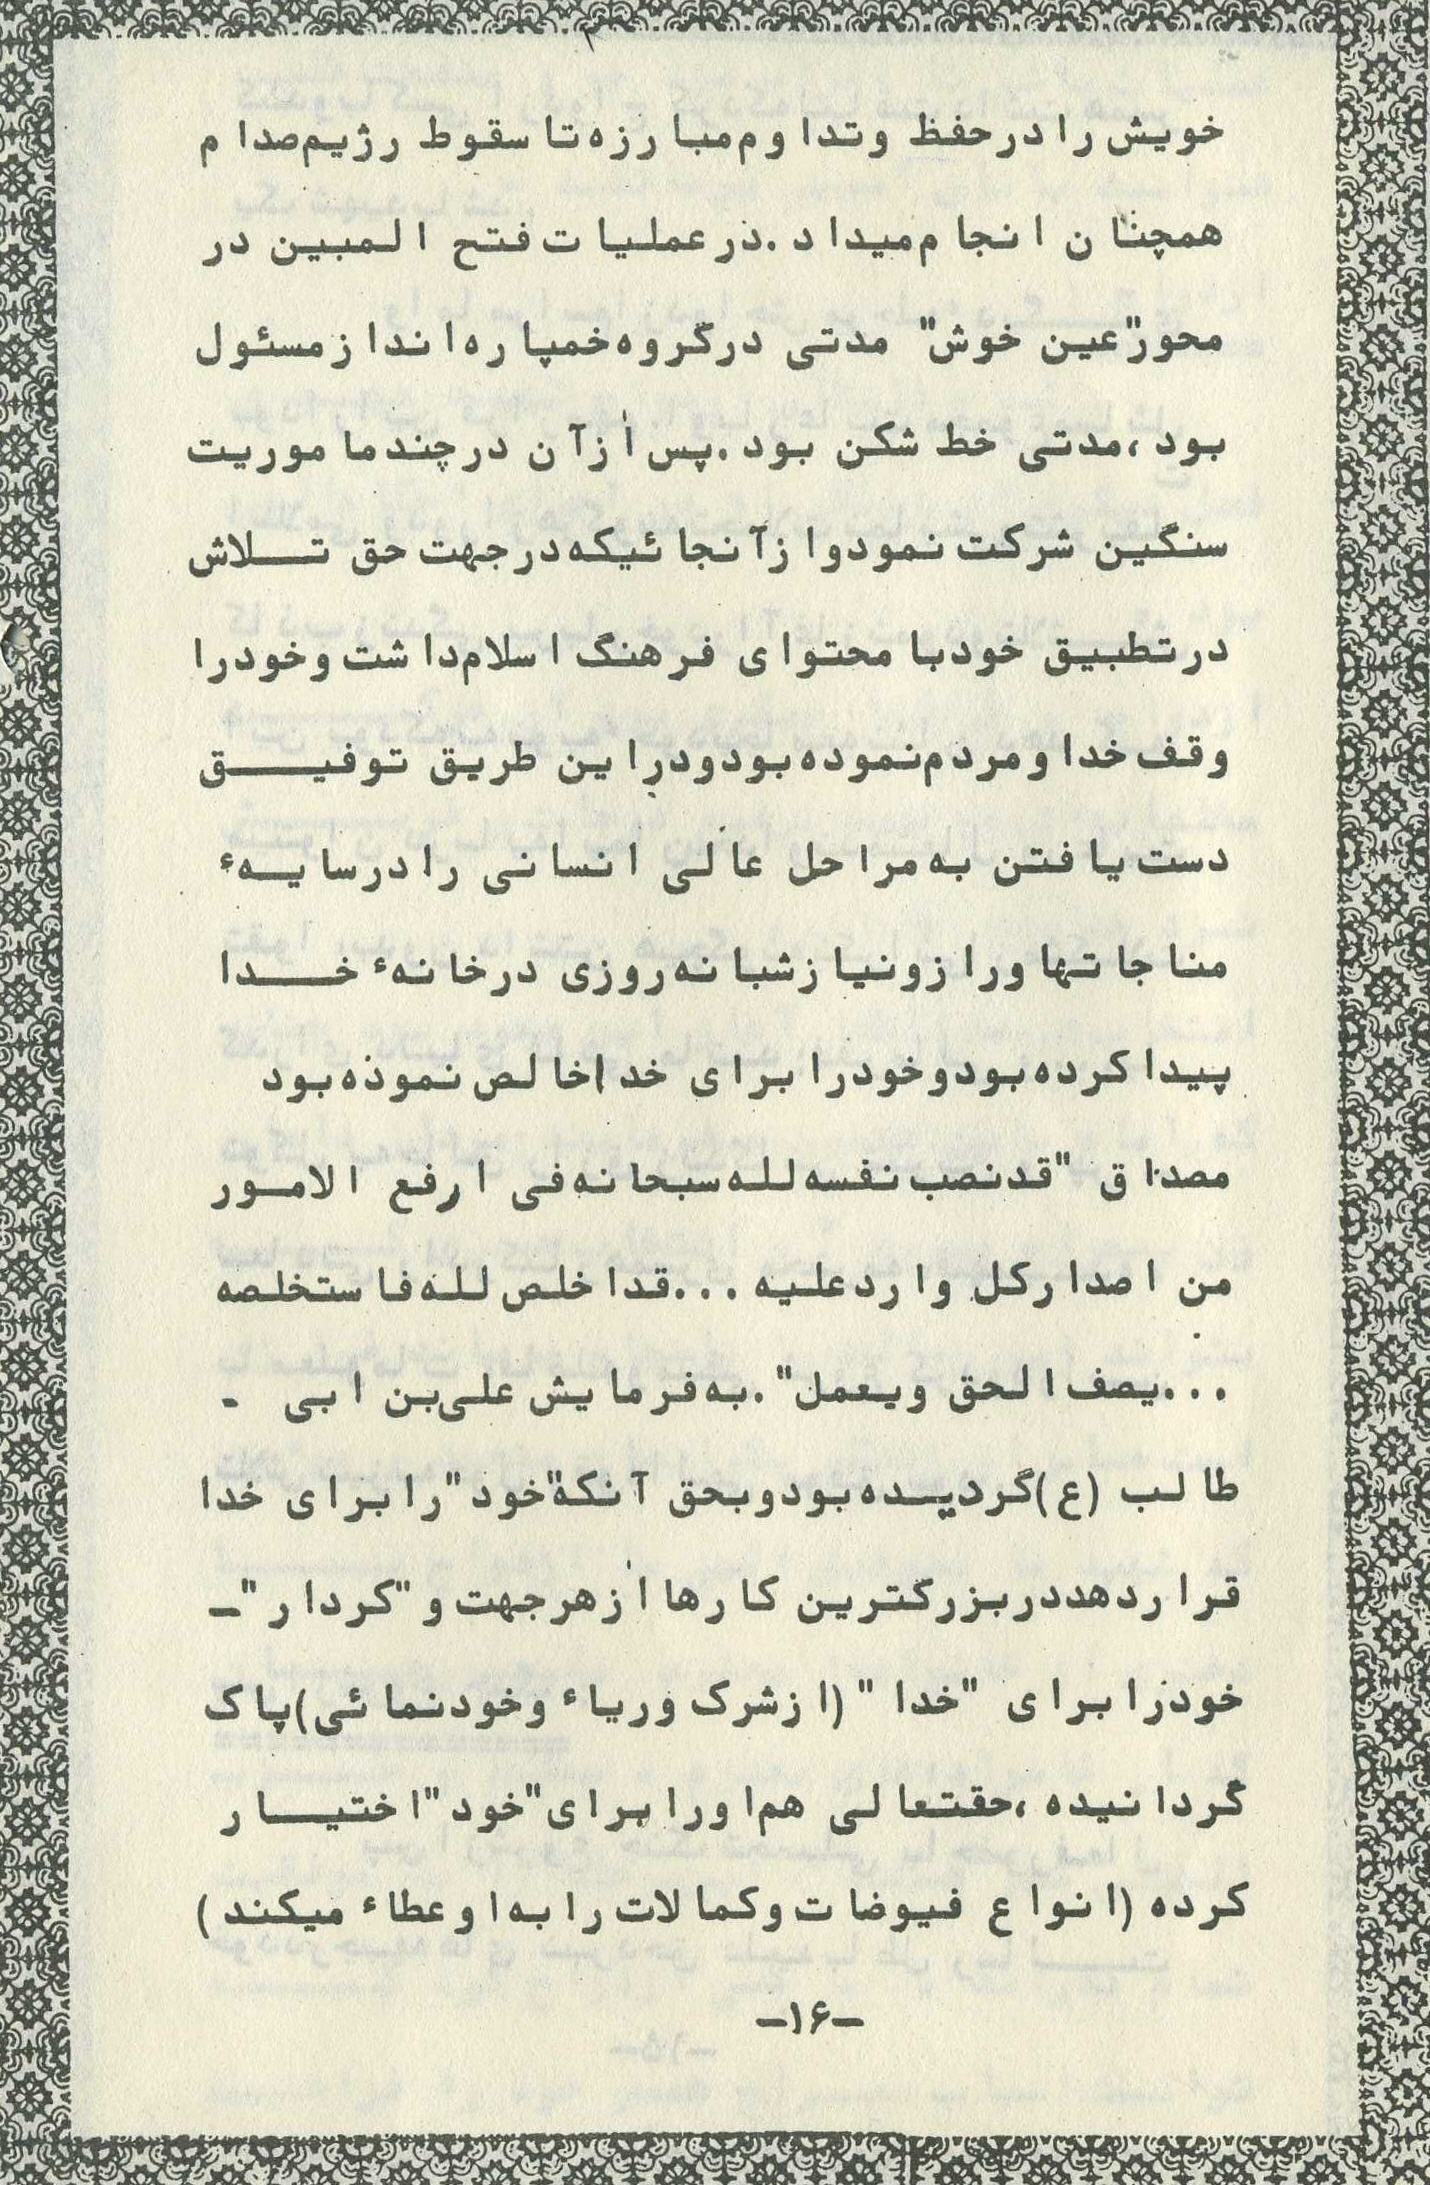 خویش را در حفظ و تداوم مبارزه تا سقوط رژیم صدام
همچنان انجام میداد. در عملیات فتح المبین در
محور "عین خوش" مدتی در گروه خمپاره انداز مسئول
بود، مدتی خط شکن بود. پس از آن در چند ماموریت
سنگین شرکت نمود و از آنجائیکه در جهت حق تـــلاش
در تطبیق خود با محتوای فرهنگ اسلام داشت و خود را
وقف خدا و مردم نموده بود و در این طریق توفیـــق
دست یافتن به مراحل عالی انسانی را در سایـهء
مناجاتها و راز و نیاز شبانه روزی در خانهء خـــدا
پیدا کرده بود و خود را برای خدا خالص نموده بود
مصداق "قد نصب نفسه لله سبحانه فی ارفع الامـور
من اصدار کل وارد علیه ... قد اخلص لله فاستخلصه
... یصف الحق و یعمل". به فرمایش علی بن ابی -
طالب (ع) گردیـده بود و بحق آنکه "خود" را برای خدا
قرار دهد در بزرگترین کارها از هر جهت و "کردار" -
خود را برای "خدا" (از شرک و ریاء و خودنمائی) پاک
گردانیده، حقتعالی هم او را برای "خود" اختیـــار
کرده (انواع فیوضات و کمالات را به او عطاء میکند)
-۱۶-